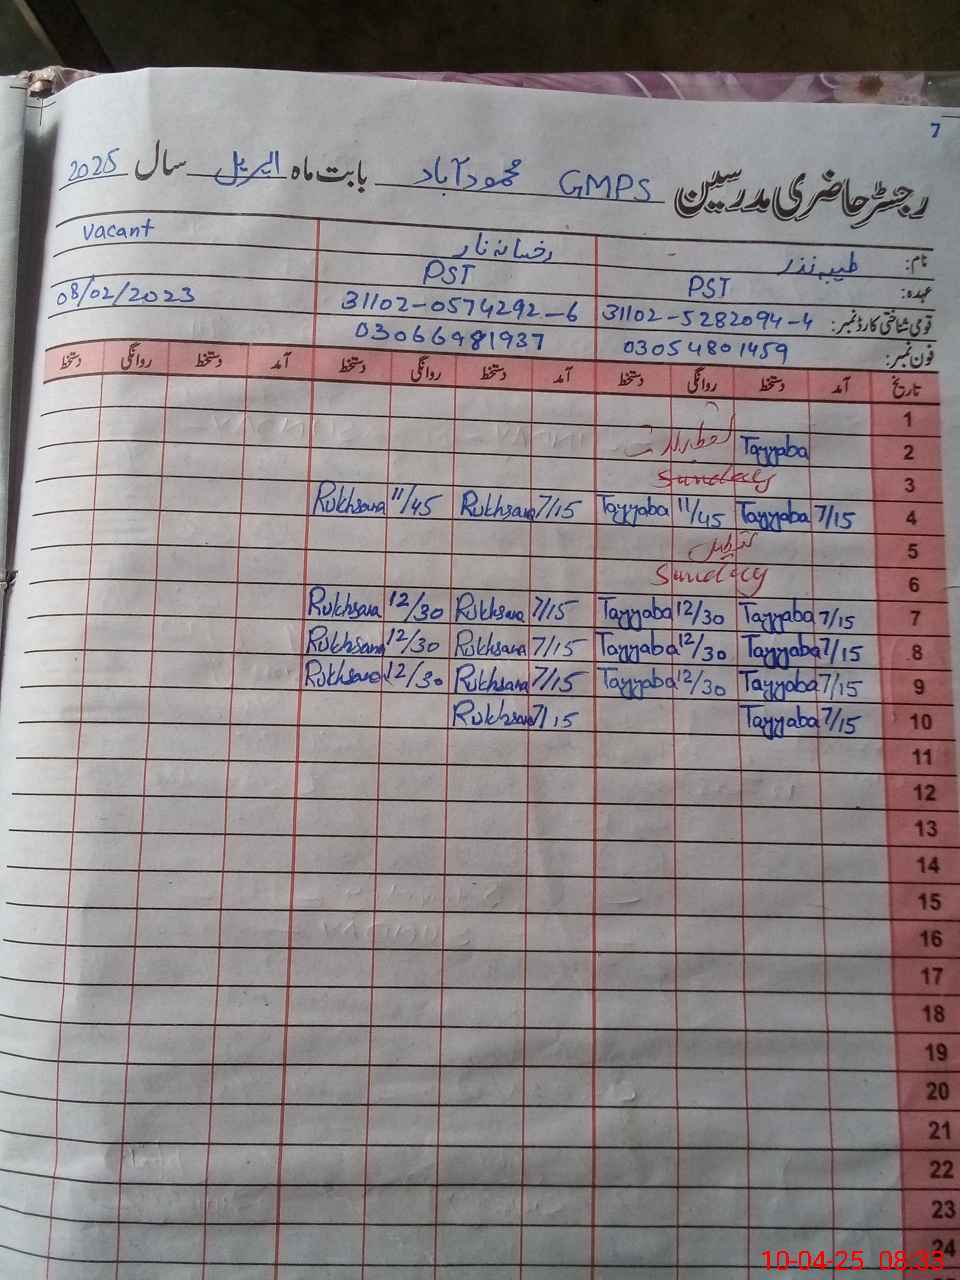 7
رجسٹر حاضری مدرسین GMPS محمود آباد بابت ماہ اپریل سال 2025
نام: طیبہ نذر رخسانہ نار vacant
عہدہ: PST PST
قومی شناختی کارڈ نمبر: 31102-5282094-4 31102-0574292-6 08/02/2023
فون نمبر: 03054801459 03066981937
تاریخ آمد دستخط روانگی دستخط آمد دستخط روانگی دستخط آمد دستخط روانگی دستخط
1
2 Tayyaba
3 Sunday
4 7/15 Tayyaba 11/45 Tayyaba 7/15 Rukhsana 11/45 Rukhsana
5 تعطیل
6 Sunday
7 7/15 Tayyaba 12/30 Tayyaba 7/15 Rukhsana 12/30 Rukhsana
8 7/15 Tayyaba 12/30 Tayyaba 7/15 Rukhsana 12/30 Rukhsana
9 7/15 Tayyaba 12/30 Tayyaba 7/15 Rukhsana 12/30 Rukhsana
10 7/15 Tayyaba 7/15 Rukhsana
11
12
13
14
15
16
17
18
19
20
21
22
23
24
10-04-25 08:33